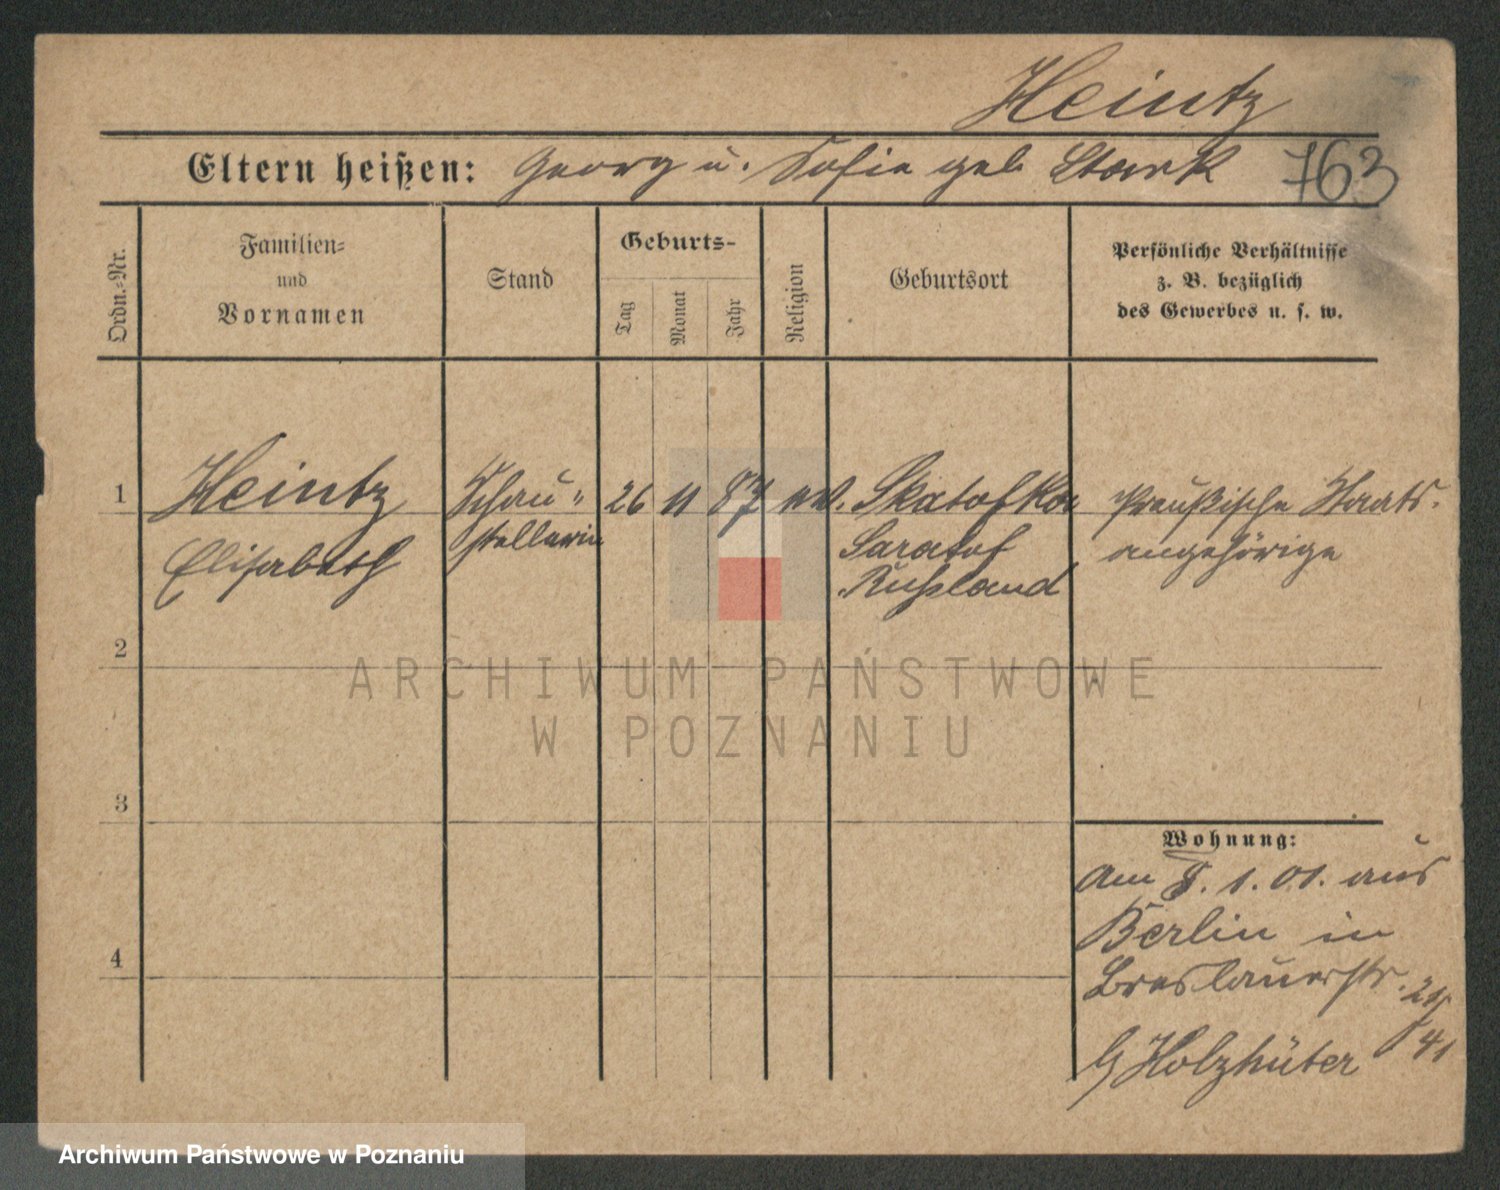 Heintz
Eltern heißen: Georg u. Sofie geb Stark 763
Ordn.-Nr.
Familien-
und
Vornamen
Stand
Geburts-
Tag
Monat
Jahr
Religion
Geburtsort
Persönliche Verhältnisse
z. B. bezüglich
des Gewerbes u. s. w.
1 Heintz Schau- 26 11 87 Skatofka Preußische Staats-
Elisabeth stellerin Saratof angehörige
Rußland
2
ARCHIWUM PAŃSTWOWE
W POZNANIU
3
Wohnung:
Am 8. 1. 01. aus
Berlin in
Breslauerstr.
4
b/ Holzhüter 41
Archiwum Państwowe w Poznaniu